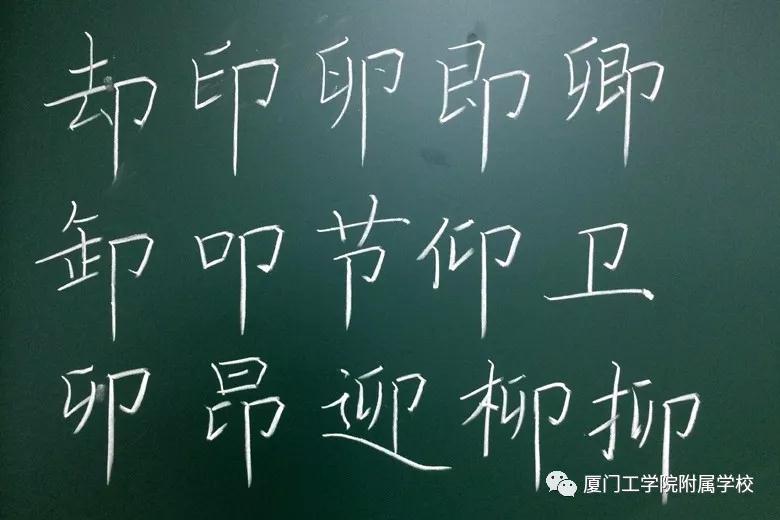 却印卵即卿
卸叩节仰卫
卯昂迎柳抑
厦门工学院附属学校